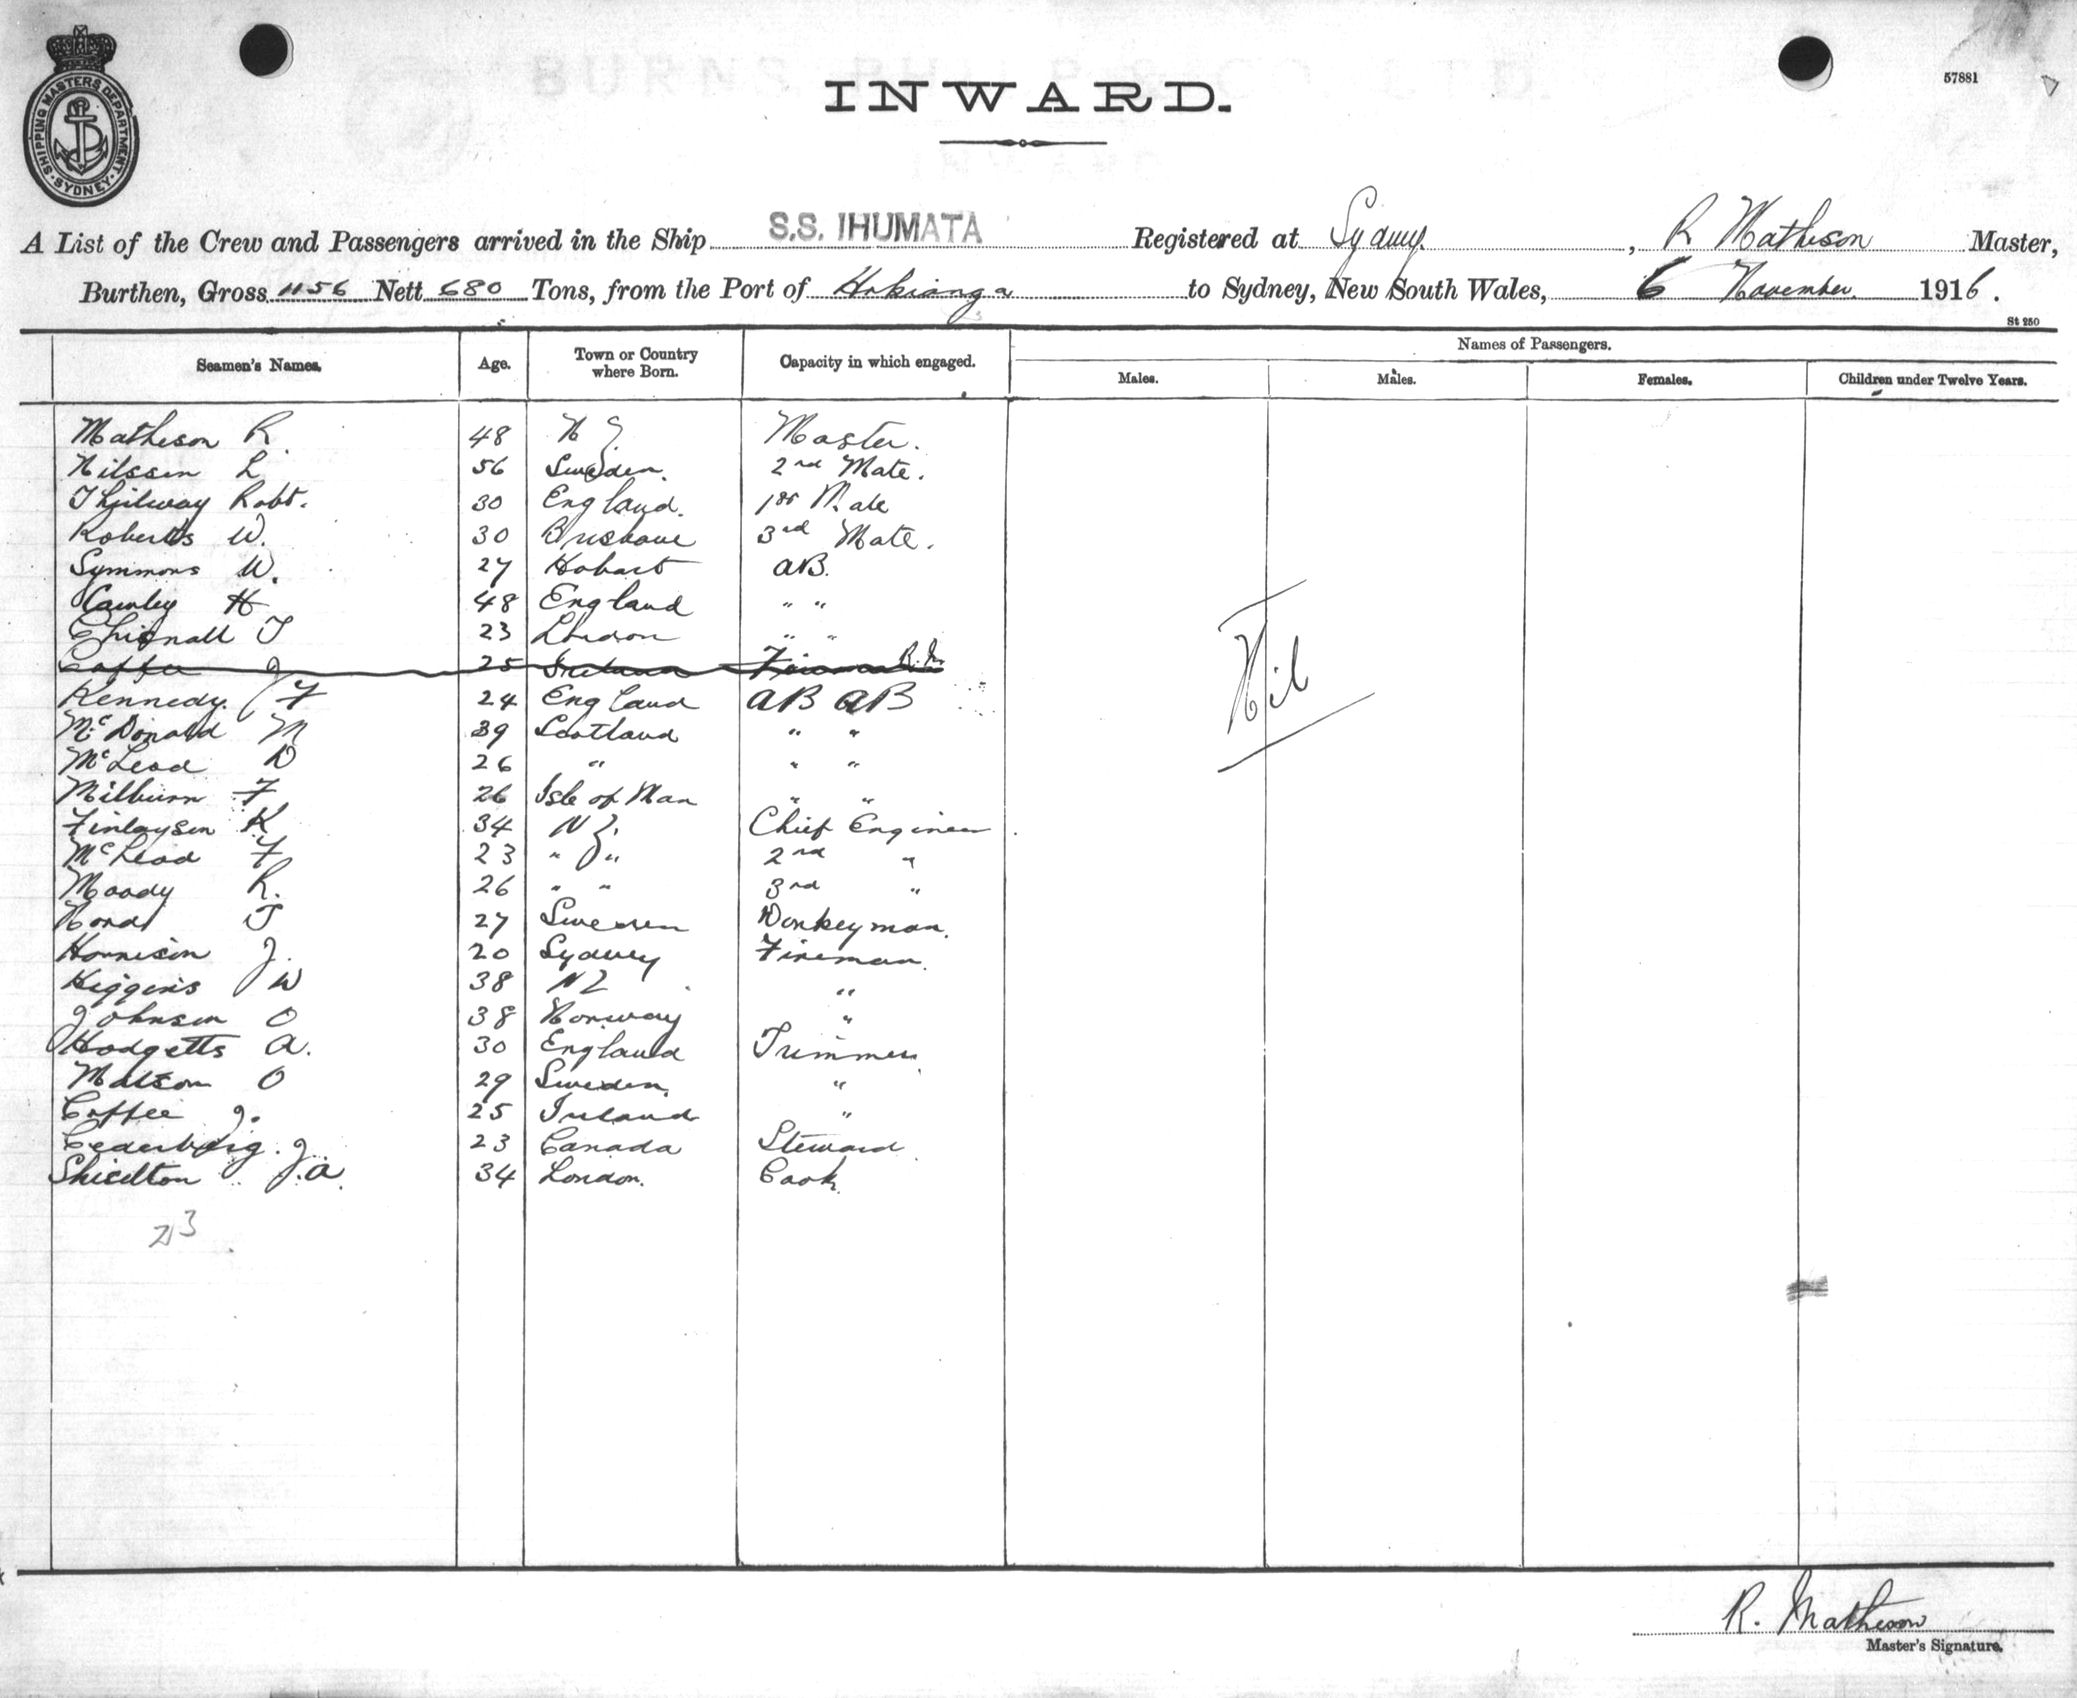 SHIPPING MASTERS DEPARTMENT
SYDNEY
57881
INWARD.
A List of the Crew and Passengers arrived in the Ship S.S. IHUMATA Registered at Sydney, R Matheson Master,
Burthen, Gross 1156 Nett 680 Tons, from the Port of Hokianga to Sydney, New South Wales, 6 November 1916.
St 250
Seamen's Names. Age. Town or Country where Born. Capacity in which engaged. Names of Passengers.
Males. Males. Females. Children under Twelve Years.
Matheson R. 48 N Z Master.
Nilssen L 56 Sweden. 2nd Mate.
Robt. 30 England. 1st Mate
Roberts W. 30 Brisbane 3rd Mate.
Symmons W. 27 Hobart AB.
Cawley H 48 England " "
Chignall T 23 London " "
Coffee J 25 Ireland Fireman R.M.
Kennedy. F 24 England AB AB
McDonald M 39 Scotland " "
McLeod D 26 " " "
Milburn F 26 Isle of Man " "
Finlayson K 34 N Z. Chief Engineer
McLeod F 23 " " 2nd "
Moody R. 26 " " 3rd "
Nord T 27 Sweden Donkeyman.
Harrison J. 20 Sydney Fireman.
Higgins W 38 NZ "
Johnson O 38 Norway "
Hodgetts A. 30 England Trimmer
Matson O 29 Sweden. "
Coffee J. 25 Ireland "
Cederberg. J. 23 Canada Steward
Shielton J.A. 34 London. Cook.
Nil
23
R. Matheson
Master's Signature.